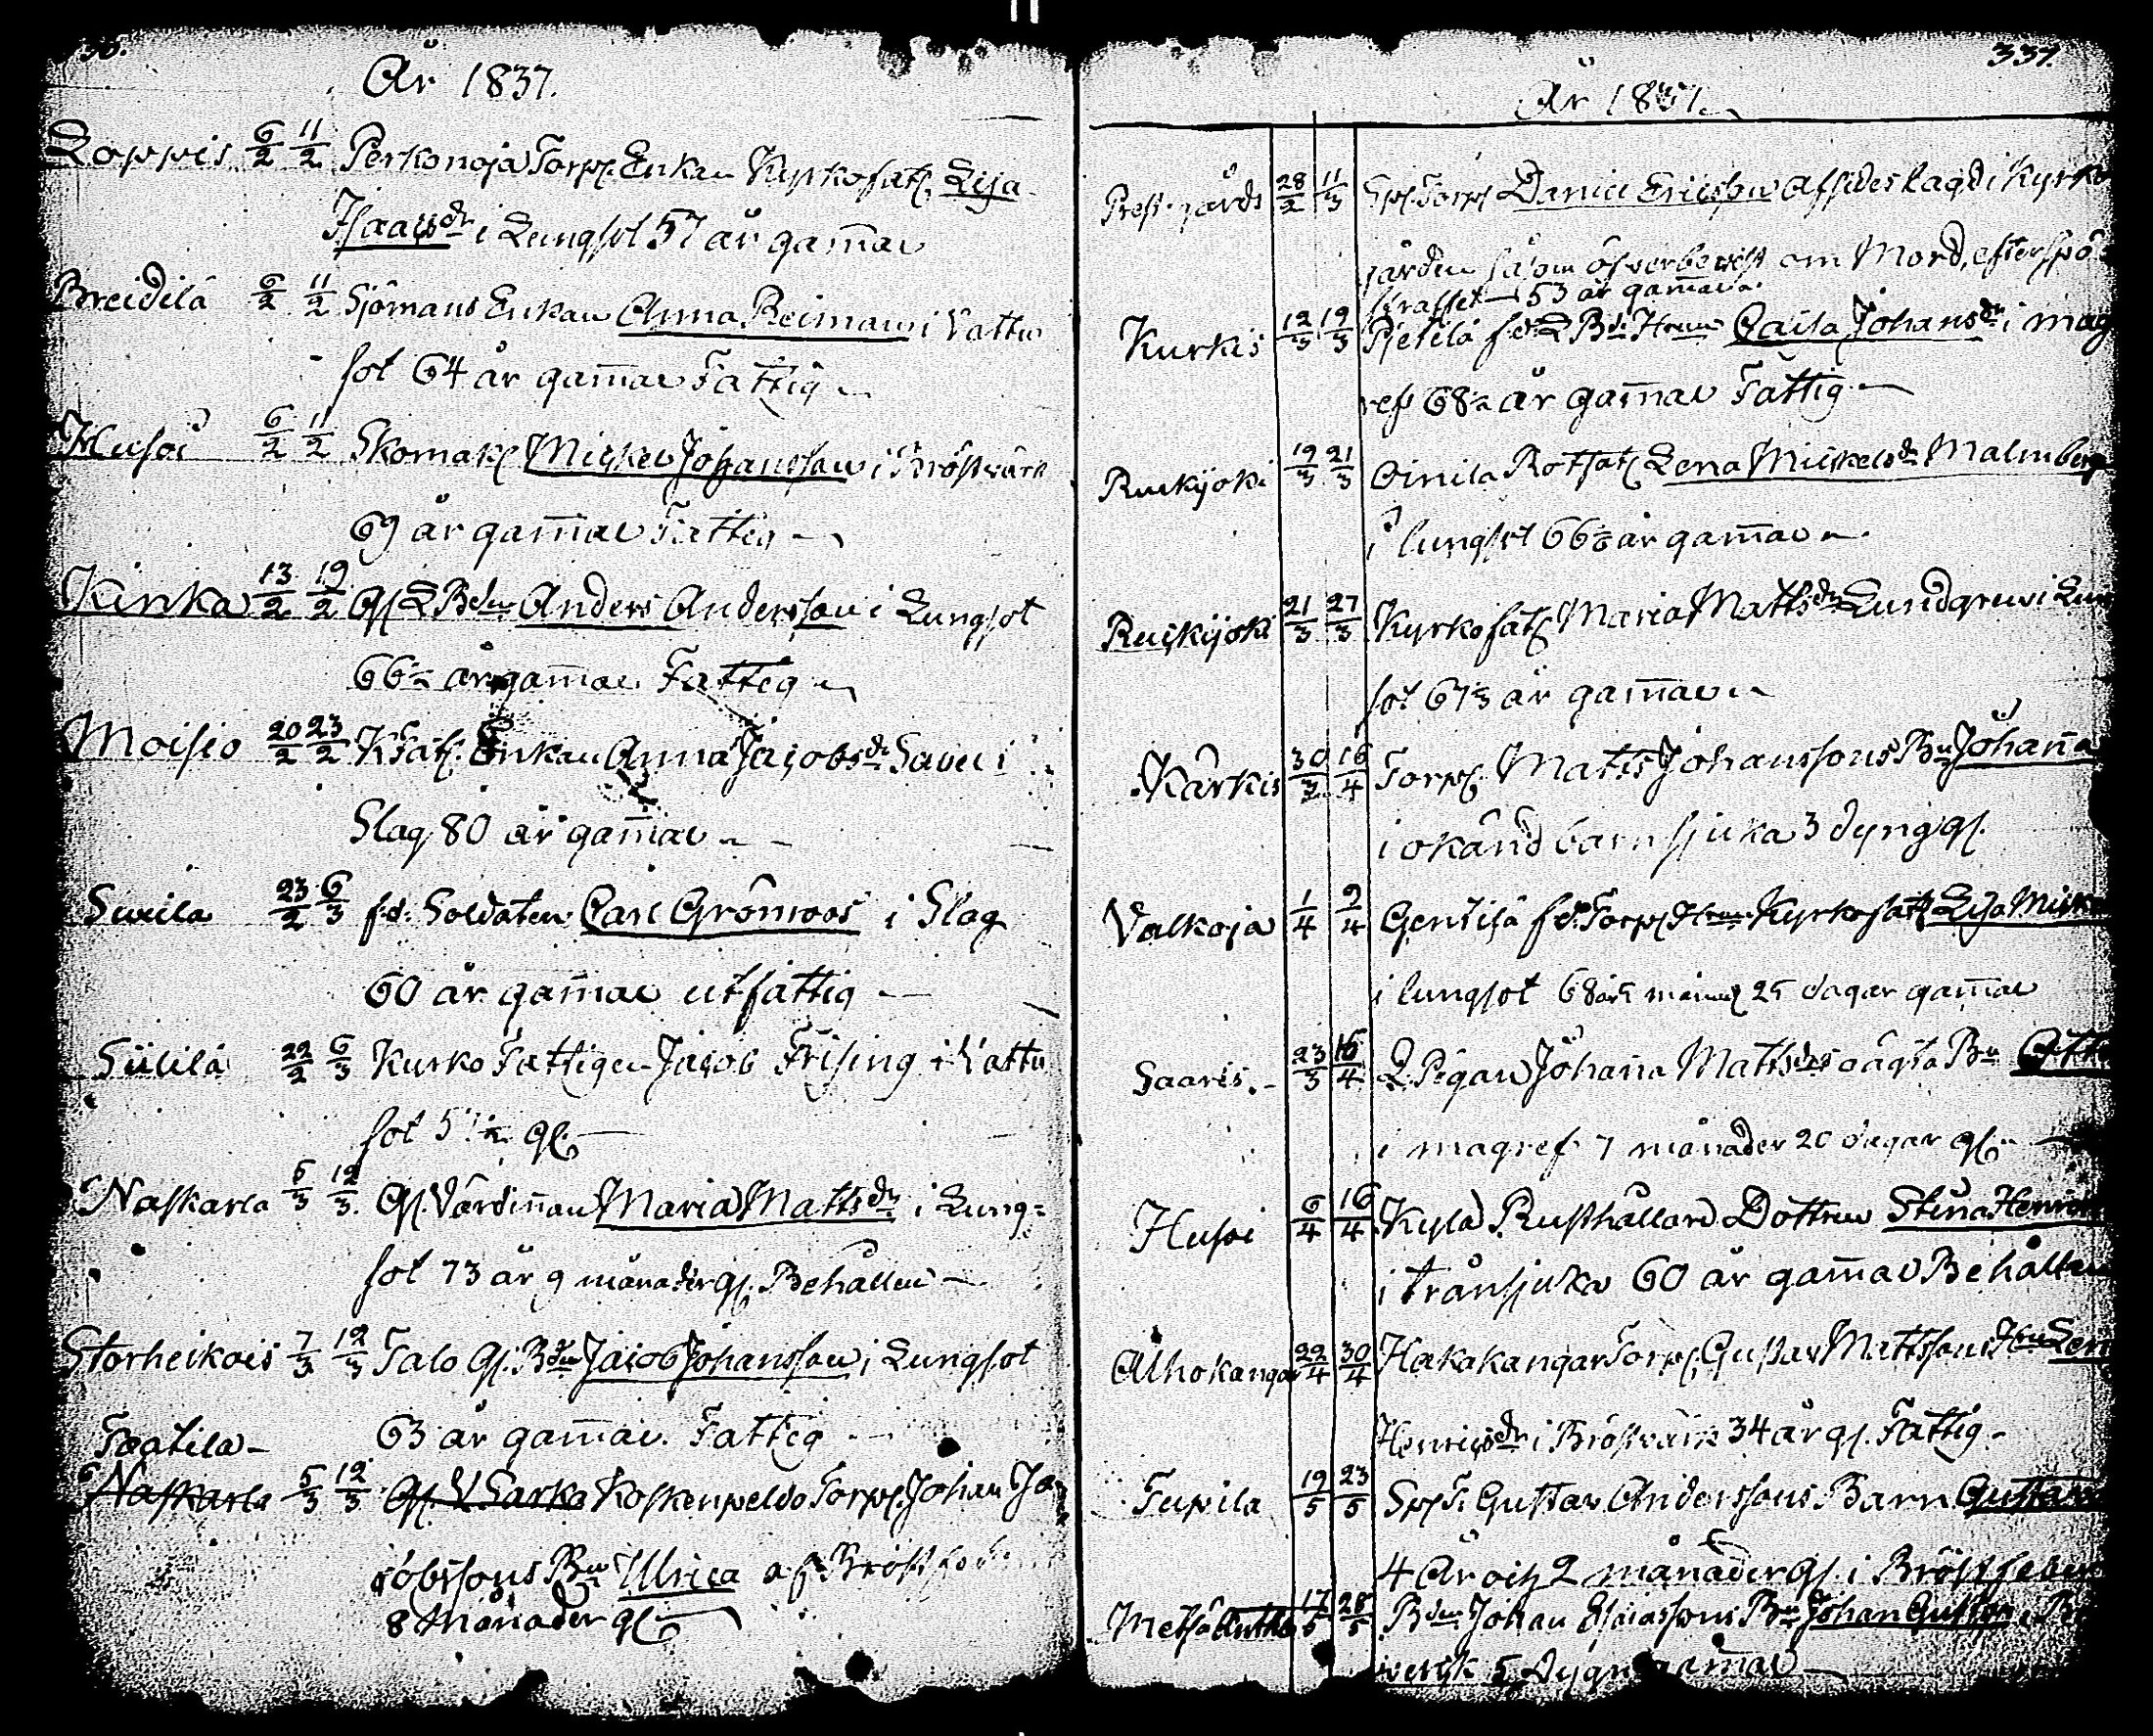 År 1837.
Loppis 6/2 11/2 Perkonoja Torp. Enkan Kyrkofatt. Lisa
Isaacsdr i Lungsot 57 år gam̅al
Breidilä 6/2 11/2 Sjömans Enkan Anna Reiman i Vattu
sot 64 år gam̅al Fattig
Husoi 6/2 11/2 Skomak. Mickel Johansson i Bröstvärk
69 år gam̅al Fattig
Kinka 13/2 19/2 Gl. L Bdn Anders Andersson i Lungsot
66½ år gam̅al Fattig
Moisio 20/2 23/2 Kfatt. Enkan Anna Jacobsdr i
Slag 80 år gam̅al
Suxila 23/2 6/3 f.d. Soldaten Carl Grönroos i Slag
60 år gam̅al utfattig
Siülilä 22/2 6/3 Kurko Fattigen Jacob Frising i Vattu
sot gl.
Naskarla 5/3 12/3 Gl. Värdin̅an Maria Mattsdr i Lung=
sot 73 år 9 månader gl. Behållen
Storheikois 7/3 12/3 Talo Gl. Bdn Jacob Johansson i Lungsot
63 år gam̅al. Fattig
Taatila
Naskarla 5/3 12/3 Gl. V Sarka Koskenpeldo Torp. Johan Ja
cobssons Bn Ulrica af Bröstfeb
8 Månader gl.
337.
År 1837.
Prestgårds 28/2 11/3 Torp. Daniel Ericsson Afsides lagd i Kyrko
gården såsom öfverbevist om Mord,
straffet 53 år gam̅al.
Kurkis 12/3 19/3 Pietilä f.d. L Bd. Hrun Caisa Johansdr i mag
ref 68½ år gam̅al Fattig
Ruskijoki 19/3 21/3 Oinila Rotfatt. Lena Mickelsdr Malmberg
i lungsot 66 år gam̅al
Ruskijoki 21/3 27/3 Kyrkofatt. Maria Mattsdr Lundgren i Lung
sot 67 år gam̅al
Kärkis 30/3 16/4 Torp. Matts Johanssons Bn Johan̅a
i okänd barnsjuka 3 dygn gl.
Valkoja 1/4 9/4 Gentilä f.d. Torp. Hrun Kyrkofatt. Lisa Mick
i lungsot 68 år månad 25 dagar gam̅al
Saaris 23/3 16/4 L. Pigan Johan̅a Mattsdrs oägta Bn
i magref 7 månader 20 dagar gl.
Husoi 6/4 16/4 Kylä Rusthållare Dottren Stina Henric
i tränsjuka 60 år gam̅al Behållen
Alhokangas 22/4 30/4 Hakakangar Torp. Gustav Mattssons Hru Len
Henricsdr i Bröstvärk 34 år gl. Fattig
Tupila 19/5 23/5 Gustav Anderssons Barn Gustav
4 År och 2 månader gl. i Bröstfeber
Metsä 17/5 28/5 Bdn Johan Esaiassons Bn Johan Gustav
5 Dygn gam̅al